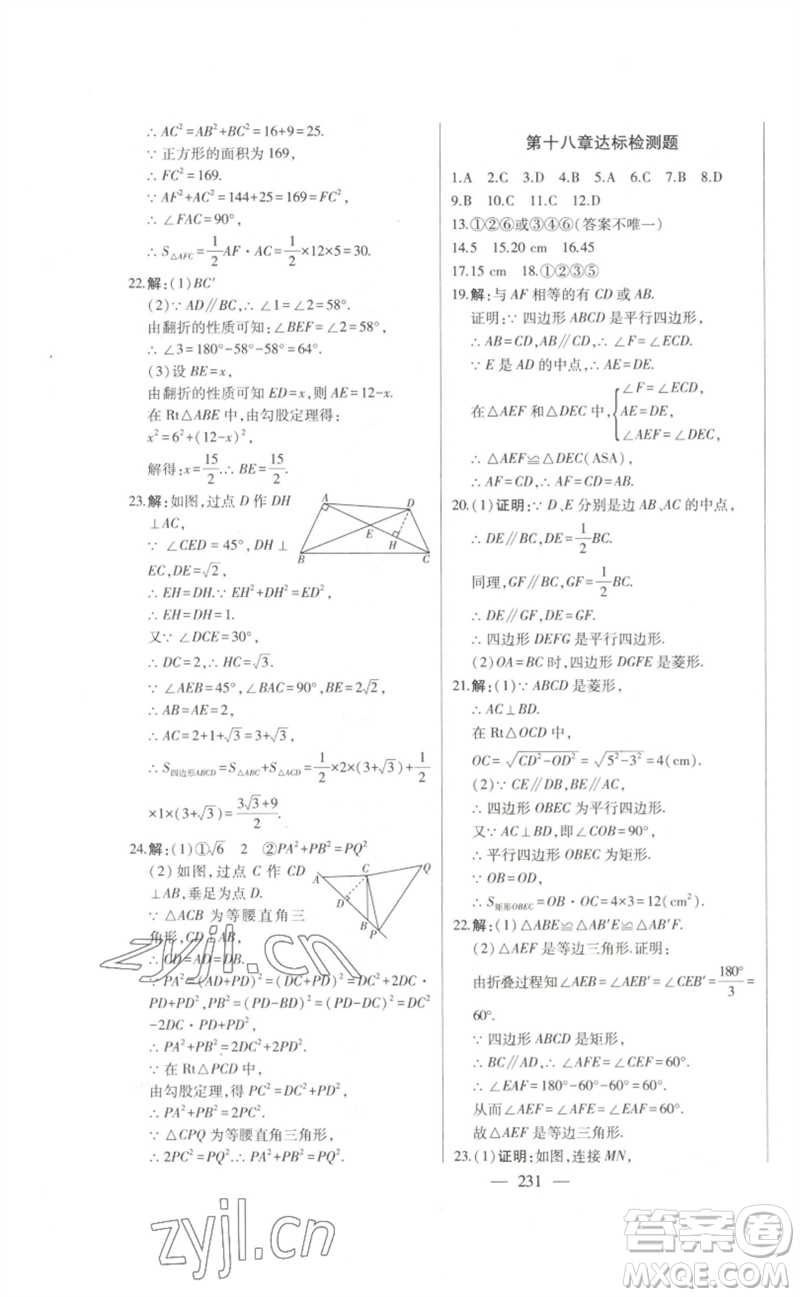 ∴ AC²=AB²+BC²=16+9=25.
∵ 正方形的面积为 169,
∴ FC²=169.
∵ AF²+AC²=144+25=169=FC²,
∴ ∠FAC=90°,
∴ S△AFC=1/2AF·AC=1/2×12×5=30.
22.解:(1)BC′
(2)∵ AD∥BC,∴ ∠1=∠2=58°.
由翻折的性质可知:∠BEF=∠2=58°,
∴ ∠3=180°-58°-58°=64°.
(3)设 BE=x,
由翻折的性质可知 ED=x,则 AE=12-x.
在 Rt△ABE 中,由勾股定理得:
x²=6²+(12-x)²,
解得:x=15/2.∴ BE=15/2.
23.解:如图,过点 D 作 DH
⊥AC,
∵ ∠CED=45°,DH⊥
EC,DE=√2,
∴ EH=DH.∵ EH²+DH²=DE²,
∴ EH=DH=1.
又∵ ∠DCE=30°,
∴ DC=2,∴ HC=√3.
∵ ∠AEB=45°,∠BAC=90°,BE=2√2,
∴ AB=AE=2,
∴ AC=2+1+√3=3+√3,
∴ S四边形ABCD=S△ABC+S△ACD=1/2×2×(3+√3)+1/2
×1×(3+√3)=(3√3+9)/2.
A
D
E
H
B
C
24.解:(1)①√6 2 ②PA²+PB²=PQ²
(2)如图,过点 C 作 CD
⊥AB,垂足为点 D.
∵ △ACB 为等腰直角三
角形,CD⊥AB,
∴ CD=AD=DB.
∵ PA²=(AD+PD)²=(DC+PD)²=DC²+2DC·
PD+PD²,PB²=(PD-BD)²=(PD-DC)²=DC²-
2DC·PD+PD²,
∴ PA²+PB²=2DC²+2PD².
∵ 在 Rt△PCD 中,
由勾股定理,得 PC²=DC²+PD²,
∴ PA²+PB²=2PC².
∵ △CPQ 为等腰直角三角形,
∴ 2PC²=PQ².∴ PA²+PB²=PQ².
A
C
Q
D
B
P
zyjl.cn
zyjl.cn
第十八章达标检测题
1.A 2.C 3.D 4.B 5.B 6.D 7.B 8.D
9.B 10.C 11.C 12.D
13.①②⑥或③④⑥(答案不唯一)
14.5 15.20 cm 16.45
17.15 cm 18.①②③⑤
19.解:与 AF 相等的有 CD 或 AB.
证明:∵ 四边形 ABCD 是平行四边形,
∴ AB=CD,AB∥CD,∴ ∠F=∠ECD.
∵ E 是 AD 的中点,∴ AE=DE.
在△AEF 和△DEC 中,{∠F=∠ECD,
AE=DE,
∠AEF=∠DEC,
∴ △AEF≌△DEC(ASA),
∴ AF=CD,∴ AF=CD=AB.
20.(1)证明:∵ D、E 分别是边 AB、AC 的中点,
∴ DE∥BC,DE=1/2BC.
同理,GF∥BC,GF=1/2BC.
∴ DE∥GF,DE=GF.
∴ 四边形 DEFG 是平行四边形.
(2)OA=BC 时,四边形 DGFE 是菱形.
21.解:(1)∵ ABCD 是菱形,
∴ AC⊥BD.
在 Rt△OCD 中,
OC=√(CD²-OD²)=√(5²-3²)=4(cm).
(2)∵ CE∥DB,BE∥AC,
∴ 四边形 OBEC 为平行四边形.
又∵ AC⊥BD,即∠COB=90°,
∴ 平行四边形 OBEC 为矩形.
∴ S矩形OBEC=OB·OC=4×3=12(cm²).
22.解:(1)△ABE≌△AB′E≌△AB′F.
(2)△AEF 是等边三角形.证明:
由折叠过程知∠AEB=∠AEB′=∠CEB′=180°/3=
60°.
∵ 四边形 ABCD 是矩形,
∴ BC∥AD,∴ ∠AFE=∠CEF=60°.
∴ ∠EAF=180°-60°-60°=60°.
从而∠AEF=∠AFE=∠EAF=60°.
故△AEF 是等边三角形.
23.(1)证明:如图,连接 MN,
— 231 —
答案圈
MXQE.COM